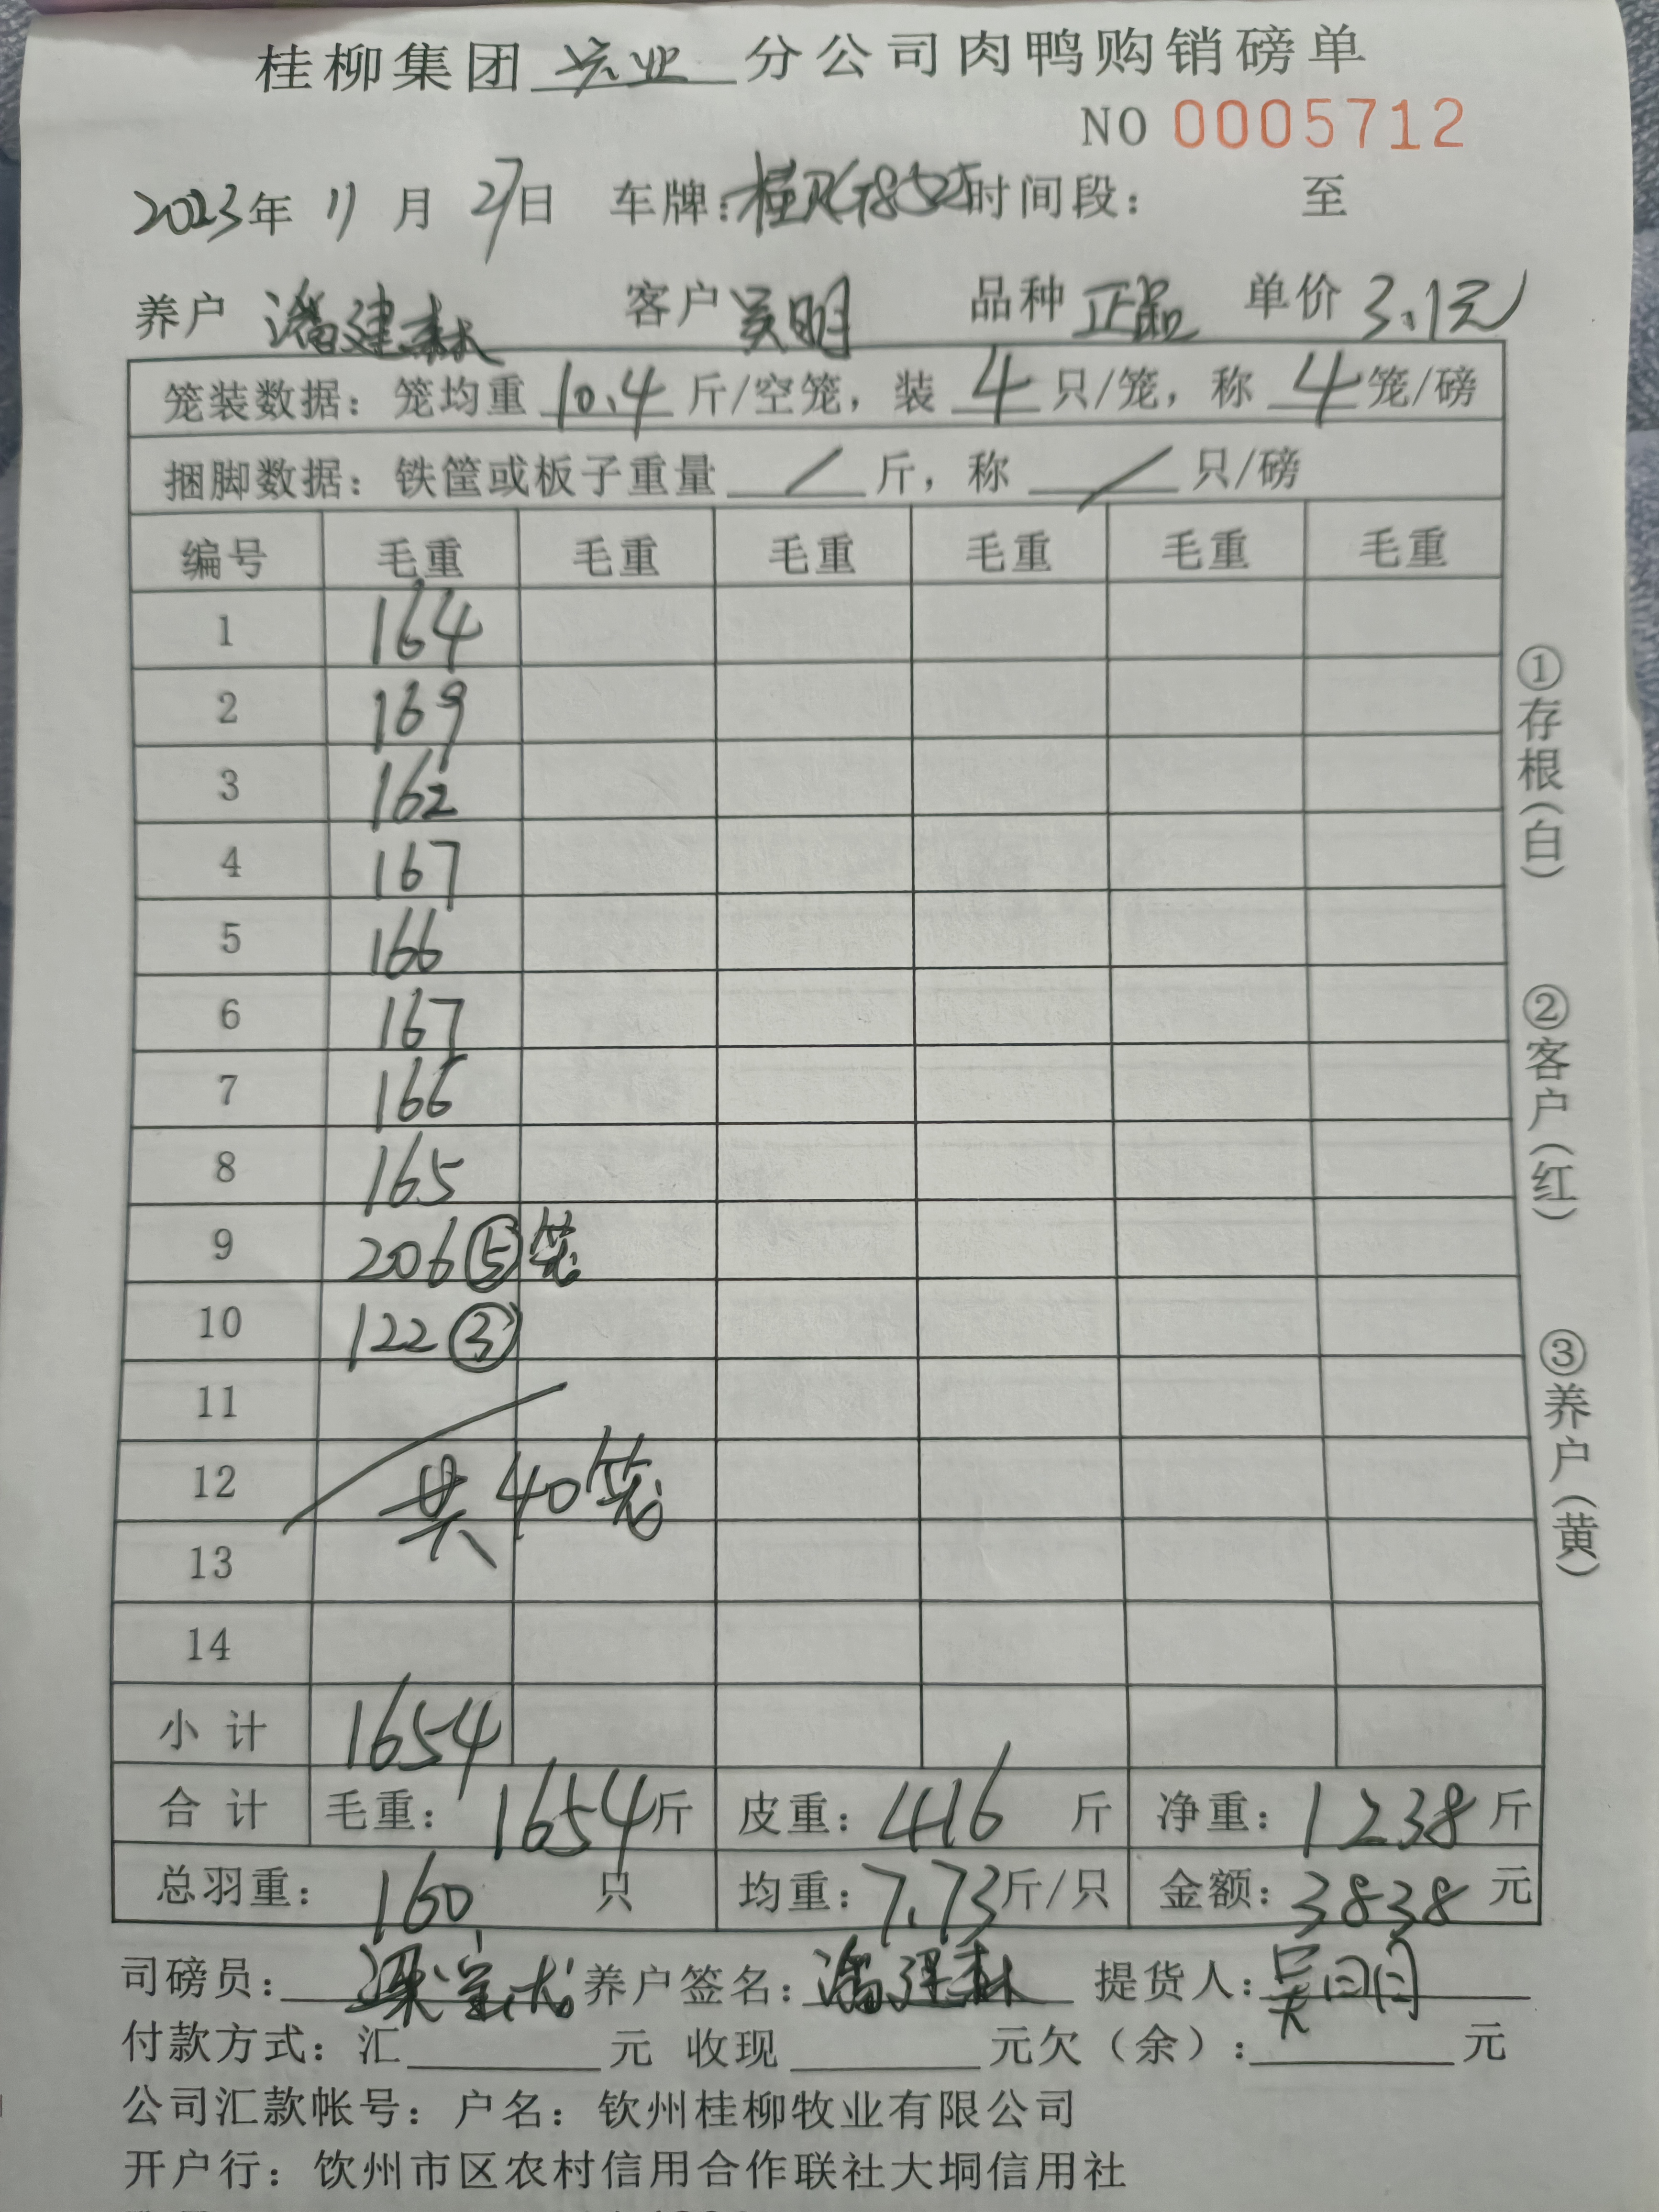 桂柳集团 宏业 分公司肉鸭购销磅单
NO 0005712
2023年 11月 27日 车牌： 时间段： 至
养户 潘建森 客户 吴明 品种 正品 单价 3.1元
笼装数据：笼均重 10.4 斤/空笼，装 4 只/笼，称 4 笼/磅
捆脚数据：铁筐或板子重量 / 斤，称 / 只/磅
编号 毛重 毛重 毛重 毛重 毛重 毛重
1 164
2 169
3 162
4 167
5 166
6 167
7 166
8 165
9 206⑤笼
10 122③
11
12 共40笼
13
14
小计 1654
合计 毛重：1654斤 皮重：416斤 净重：1238斤
总羽重：160只 均重：7.73斤/只 金额：3838元
司磅员： 养户签名：潘建森 提货人：吴明
付款方式：汇 元 收现 元欠（余）： 元
公司汇款帐号：户名：钦州桂柳牧业有限公司
开户行：钦州市区农村信用合作联社大垌信用社
①存根（白）
②客户（红）
③养户（黄）